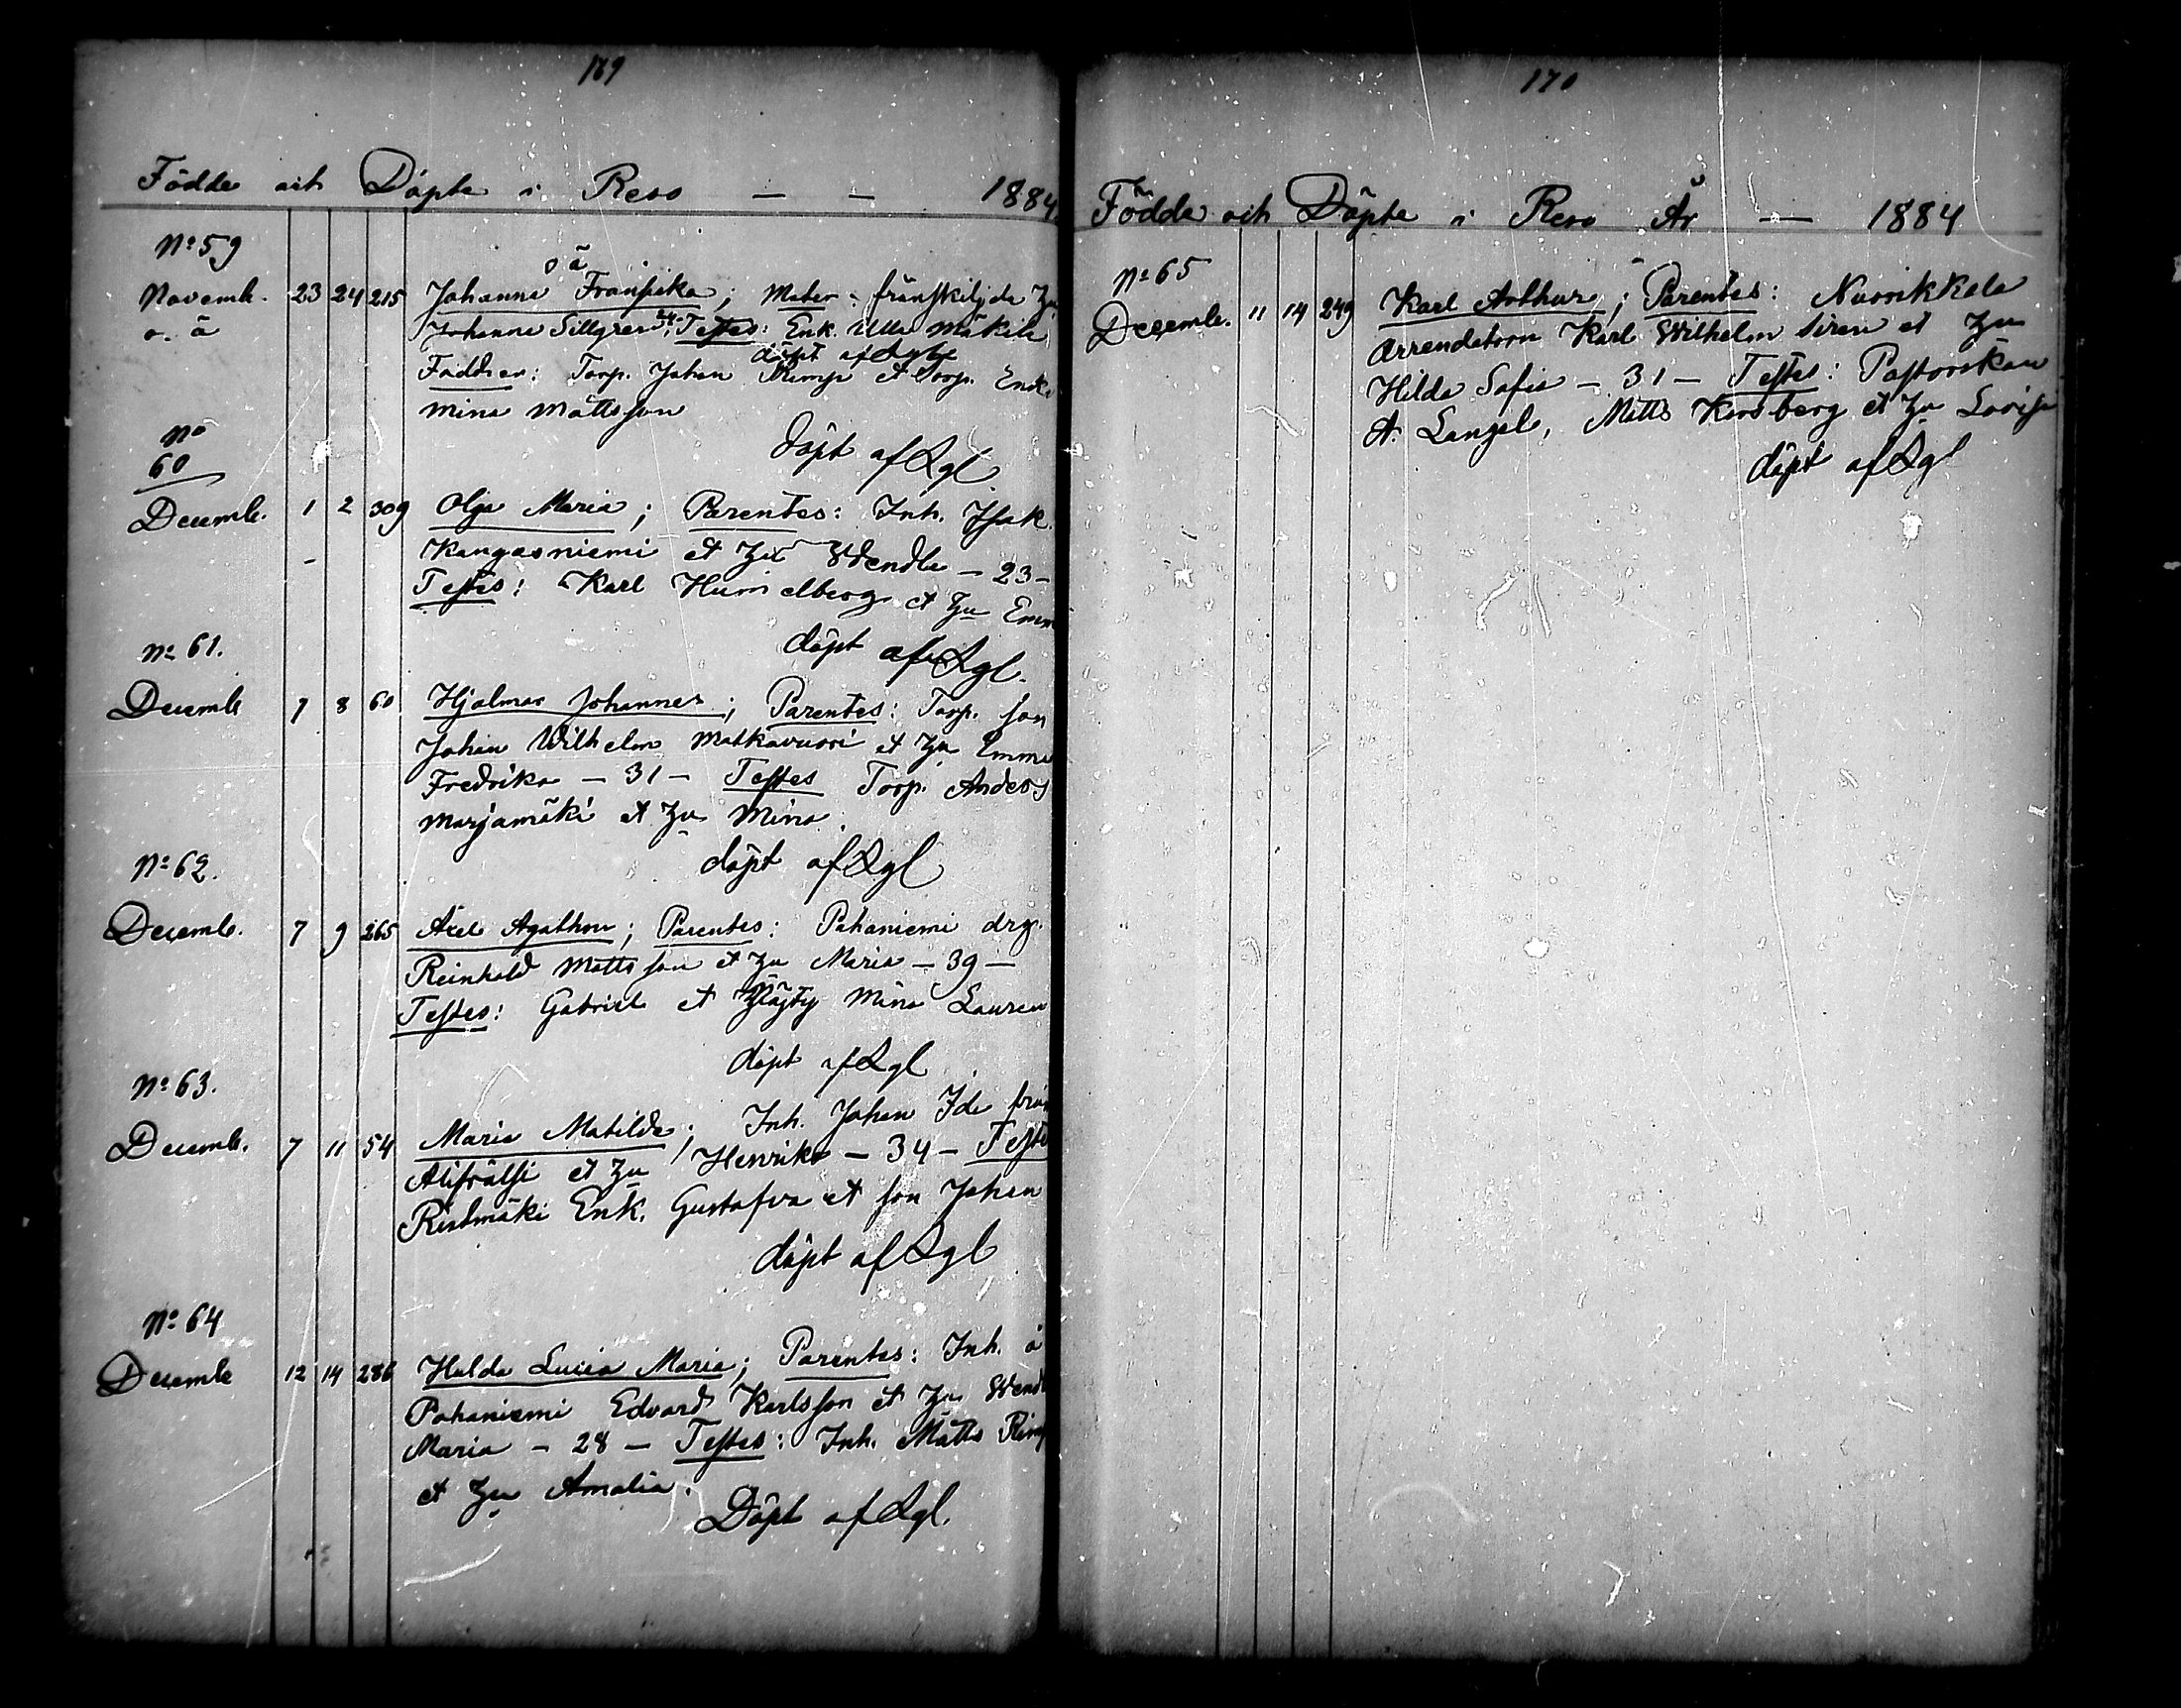 169
Födde och Döpte i Reso — — 1884
No 59
o ä
Novemb. 23 24 215 Johanna Fransiska; Mater: frånskiljda Hu
o. ä Johanna Sillgren 24; Testes: Enk. Ulla Mäkilä
döpt af Lgl
Faddrar: Torp. Johan Kemp et Torp. Enk.
Mina Mattsson
döpt af Lgl
No
60
Decemb. 1 2 309 Olga Maria; Parentes: Inh. Isak
Kangasniemi et Hu Wendla — 23 —
Testes: Karl Humelberg et Hu Emm
döpt af Lgl.
No 61.
Decemb 7 8 60 Hjalmar Johannes; Parentes: Torp. son
Johan Wilhelm Matkavuori et Hu Emma
Fredrika — 31 — Testes Torp. Anders
Marjamäki et Hu Mina.
döpt af Lgl
No 62.
Decemb. 7 9 265 Axel Agathon; Parentes: Pahaniemi drg.
Reinhold Mattsson et Hu Maria — 39 —
Testes: Gabriel et Mina Lauren
döpt af Lgl
No 63.
Decemb. 7 11 54 Maria Matilda; Inh. Johan Ide från
Alifrälsi et Hu Henrika — 34 — Teste
Ristimäki Enk. Gustafva et son Johan
döpt af Lgl
No 64
Decemb 12 14 286 Hulda Lucia Maria; Parentes: Inh. å
Pahaniemi Edvard Karlsson et Hu Wendl
Maria — 28 — Testes: Inh. Matts
et Hu Amalia.
Döpt af Lgl.
170
Födde och Döpte i Reso År — 1884
No 65
Decemb. 11 14 249 Karl Arthur; Parentes: Nuorikkala
Arrendatorn Karl Wilhelm Siren et Hu
Hilda Sofia — 31 — Testes: Pastorskan
A. Langel, Matts Korsberg et Hu Lovisa
döpt af Lgl